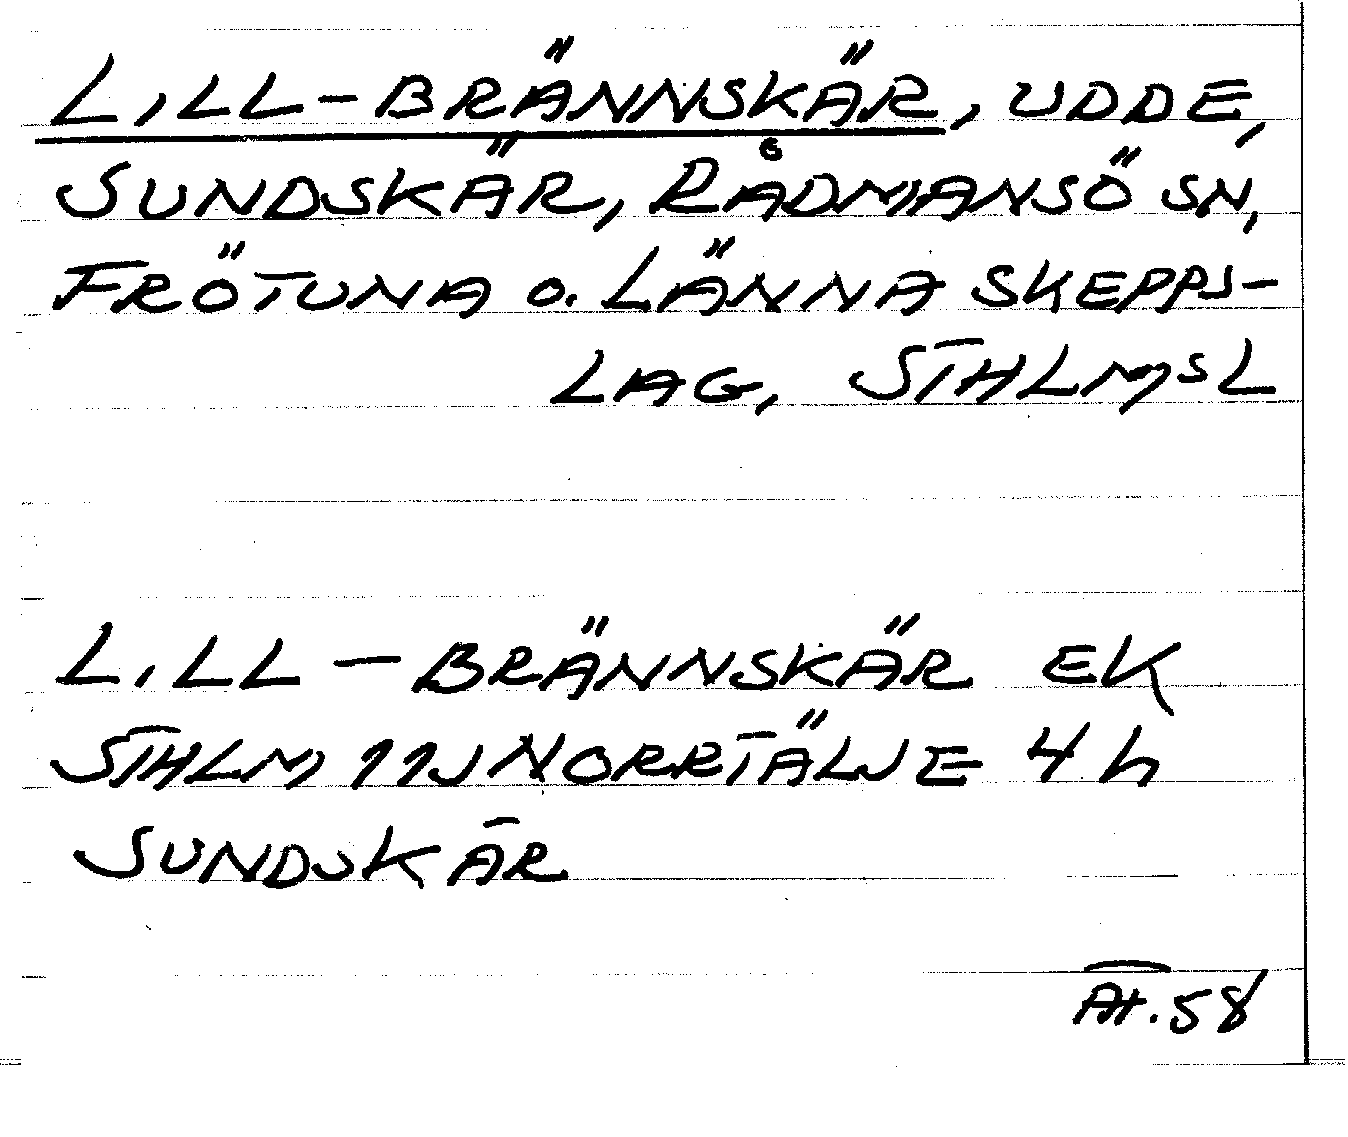 LILL-BRÄNNSKÄR, UDDE,
SUNDSKÄR, RÅDMANSÖ SN,
FRÖTUNA o. LÄNNA SKEPPS-
LAG, STHLMSL
LILL-BRÄNNSKÄR EK
STHLM 11J NORRTÄLJE 4h
SUNDSKÄR
ÄH.58